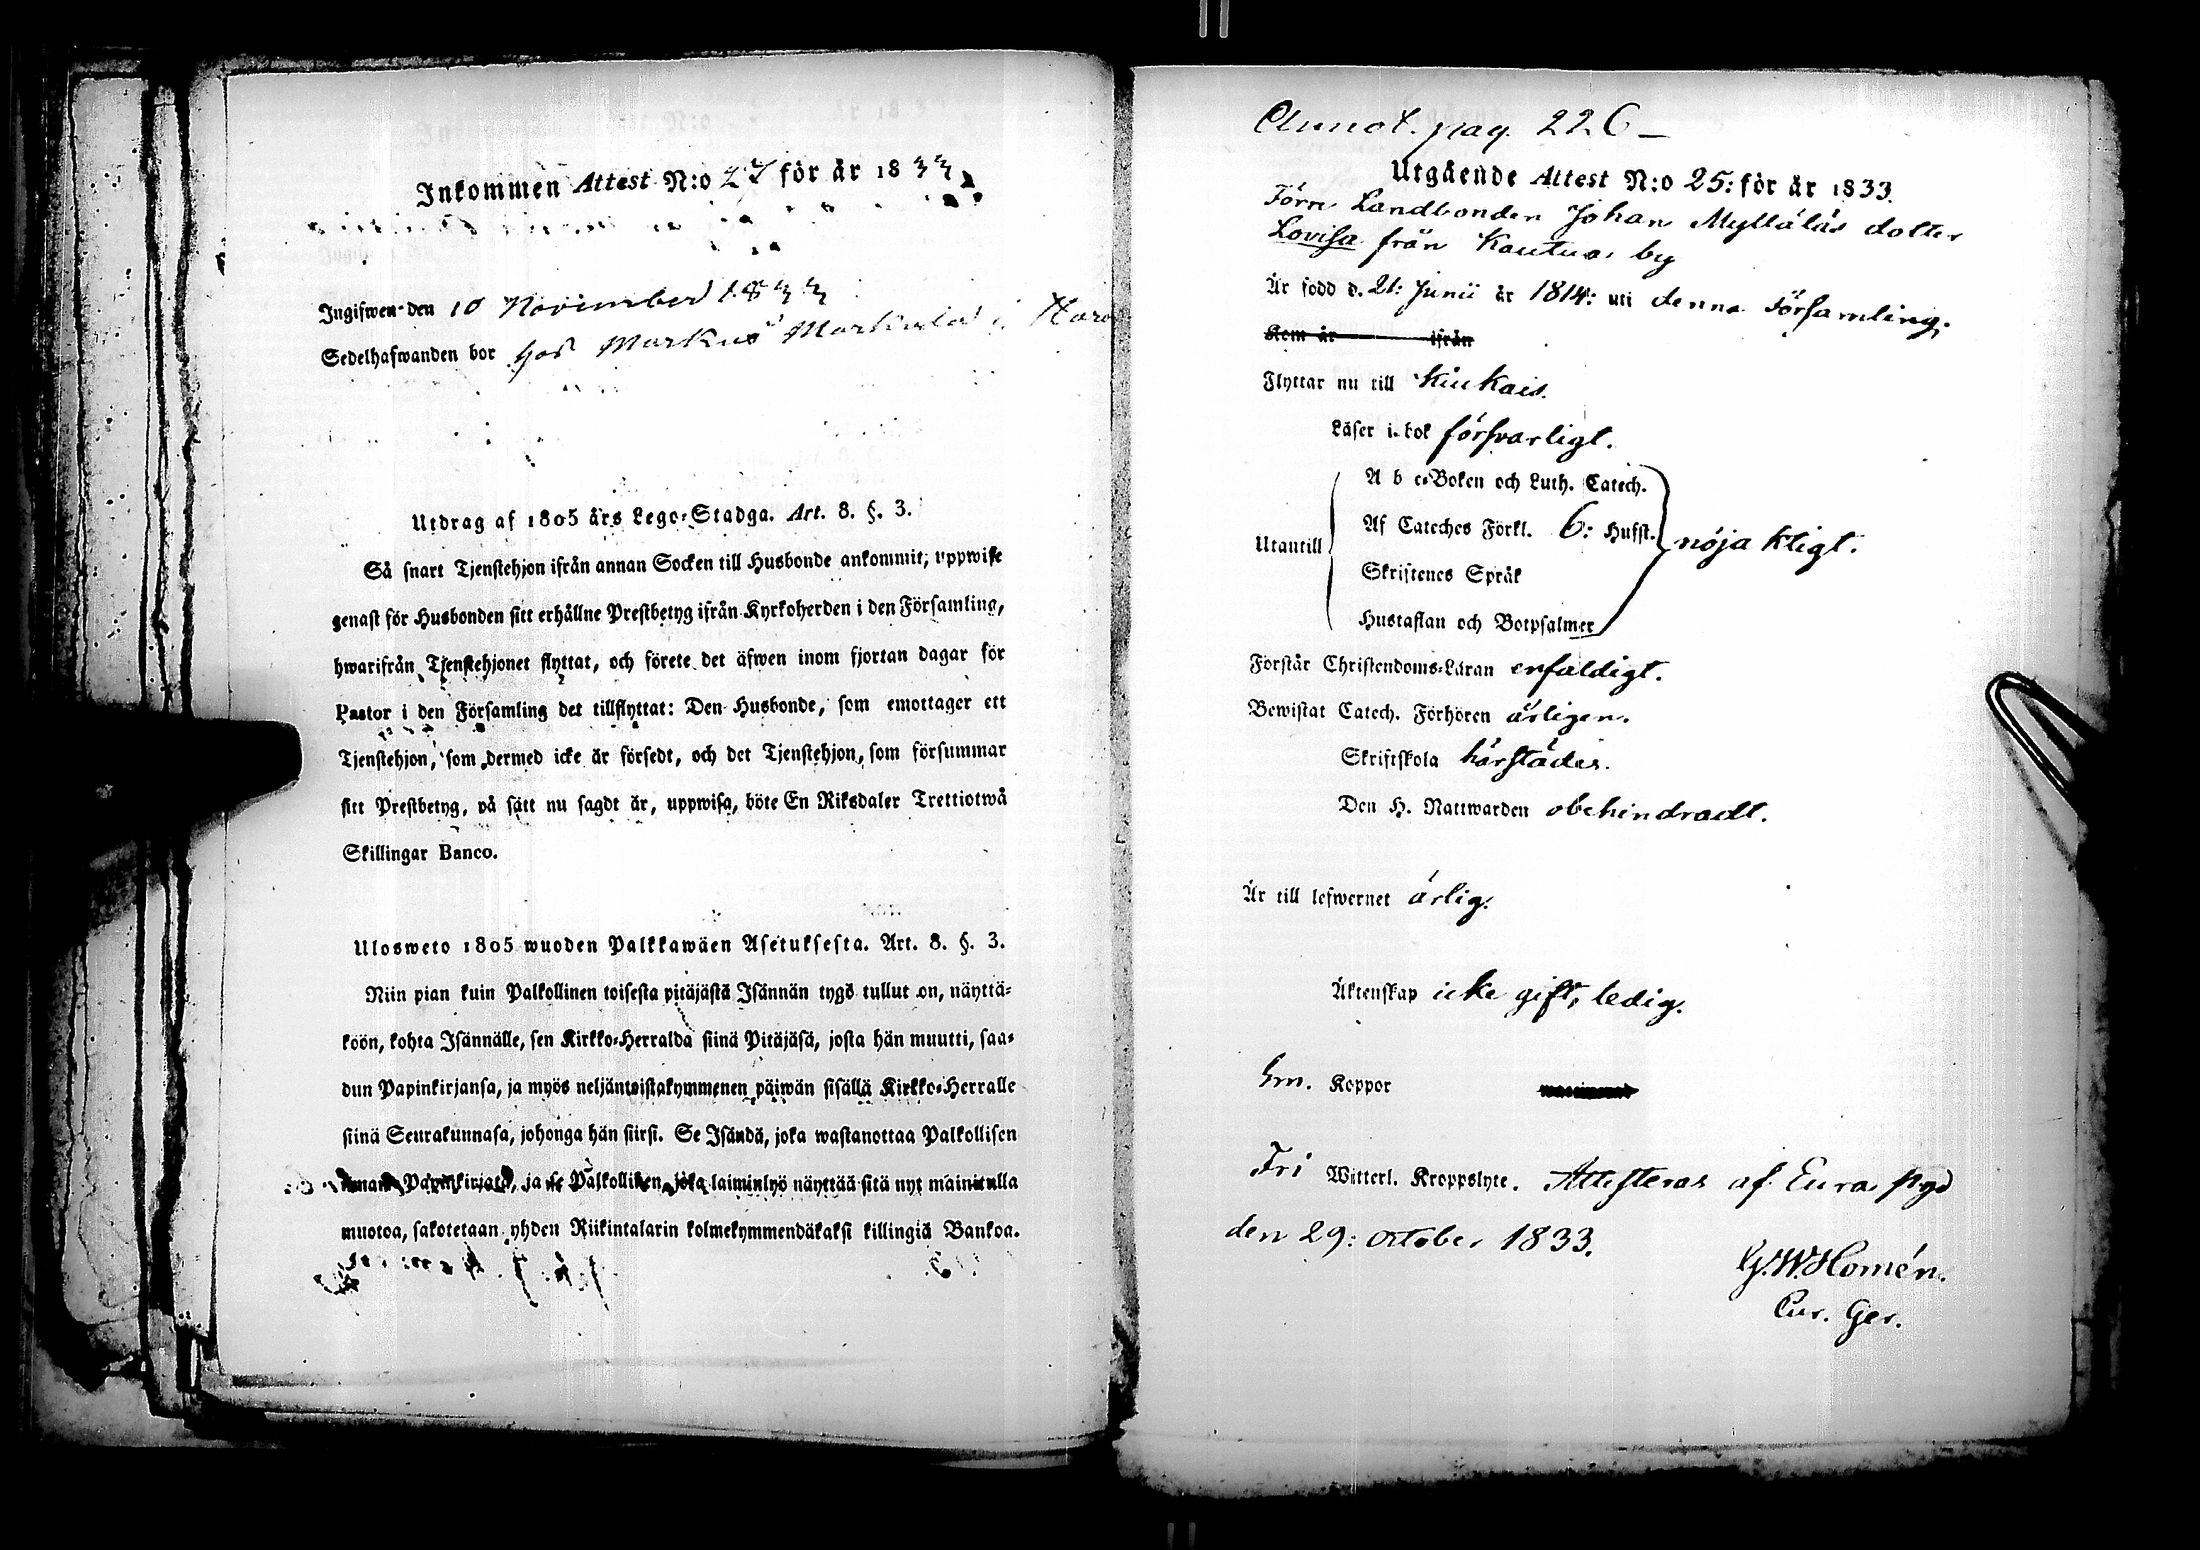 Inkommen Attest N:o 27 för år 1833
Ingifwen den 10 November 1833
Sedelhafwanden bor hos Markus Markula i
Utdrag af 1805 års Lego-Stadga. Art. 8. §. 3.
Så snart Tjenstehjon ifrån annan Socken till Husbonde ankommit, uppwise
genast för Husbonden sitt erhållne Prestbetyg ifrån Kyrkoherden i den Församling,
hwarifrån Tjenstehjonet flyttat, och förete det äfwen inom fjortan dagar för
Pastor i den Församling det tillflyttat: Den Husbonde, som emottager ett
Tjenstehjon, som dermed icke är försedt, och det Tjenstehjon, som försummar
sitt Prestbetyg, på sätt nu sagdt är, uppwisa, böte En Riksdaler Trettiotwå
Skillingar Banco.
Ulosweto 1805 wuoden Palkkawäen Asetuksesta. Art. 8. §. 3.
Niin pian kuin Palkollinen toisesta pitäjästä Isännän tygö tullut on, näyttä-
köön, kohta Isännälle, sen Kirkko-Herralda siinä Pitäjäsä, josta hän muutti, saa-
dun Papinkirjansa, ja myös neljäntoistakymmenen päiwän sisällä Kirkko-Herralle
siinä Seurakunnasa, johonga hän siirsi. Se Isändä, joka wastanottaa Palkollisen
ilman Papinkirjata, ja se Palkollinen, joka laiminlyö näyttää sitä nyt mainitulla
muotoa, sakotetaan yhden Riikintalarin kolmekymmendäkaksi killingiä Bankoa.
Annot. pag. 226
Utgående Attest N:o 25: för år 1833.
Förre Landbonden Johan Mylläläs dotter
Lovisa från Kautua by
Är född d. 21: Junii år 1814: uti denna Församling.
Kom år ifrån
Flyttar nu till Kiukais.
Läser i bok försvarligt.
A b c-Boken och Luth. Catech.
Af Cateches Förkl. 6: Hufst.
Utantill nöjaktigt.
Skriftenes Språk
Hustaflan och Botpsalmer
Förstår Christendoms-Läran enfaldigt.
Bewistat Catech. Förhören årligen.
Skriftskola härstädes.
Den H. Nattwarden obehindradt.
Är till lefwernet ärlig.
Äktenskap icke gift, ledig.
Koppor
Fri Witterl. Kroppslyte. Attesteras af Eura
den 29: October 1833.
G.W. Homén.
Cur. Ger.